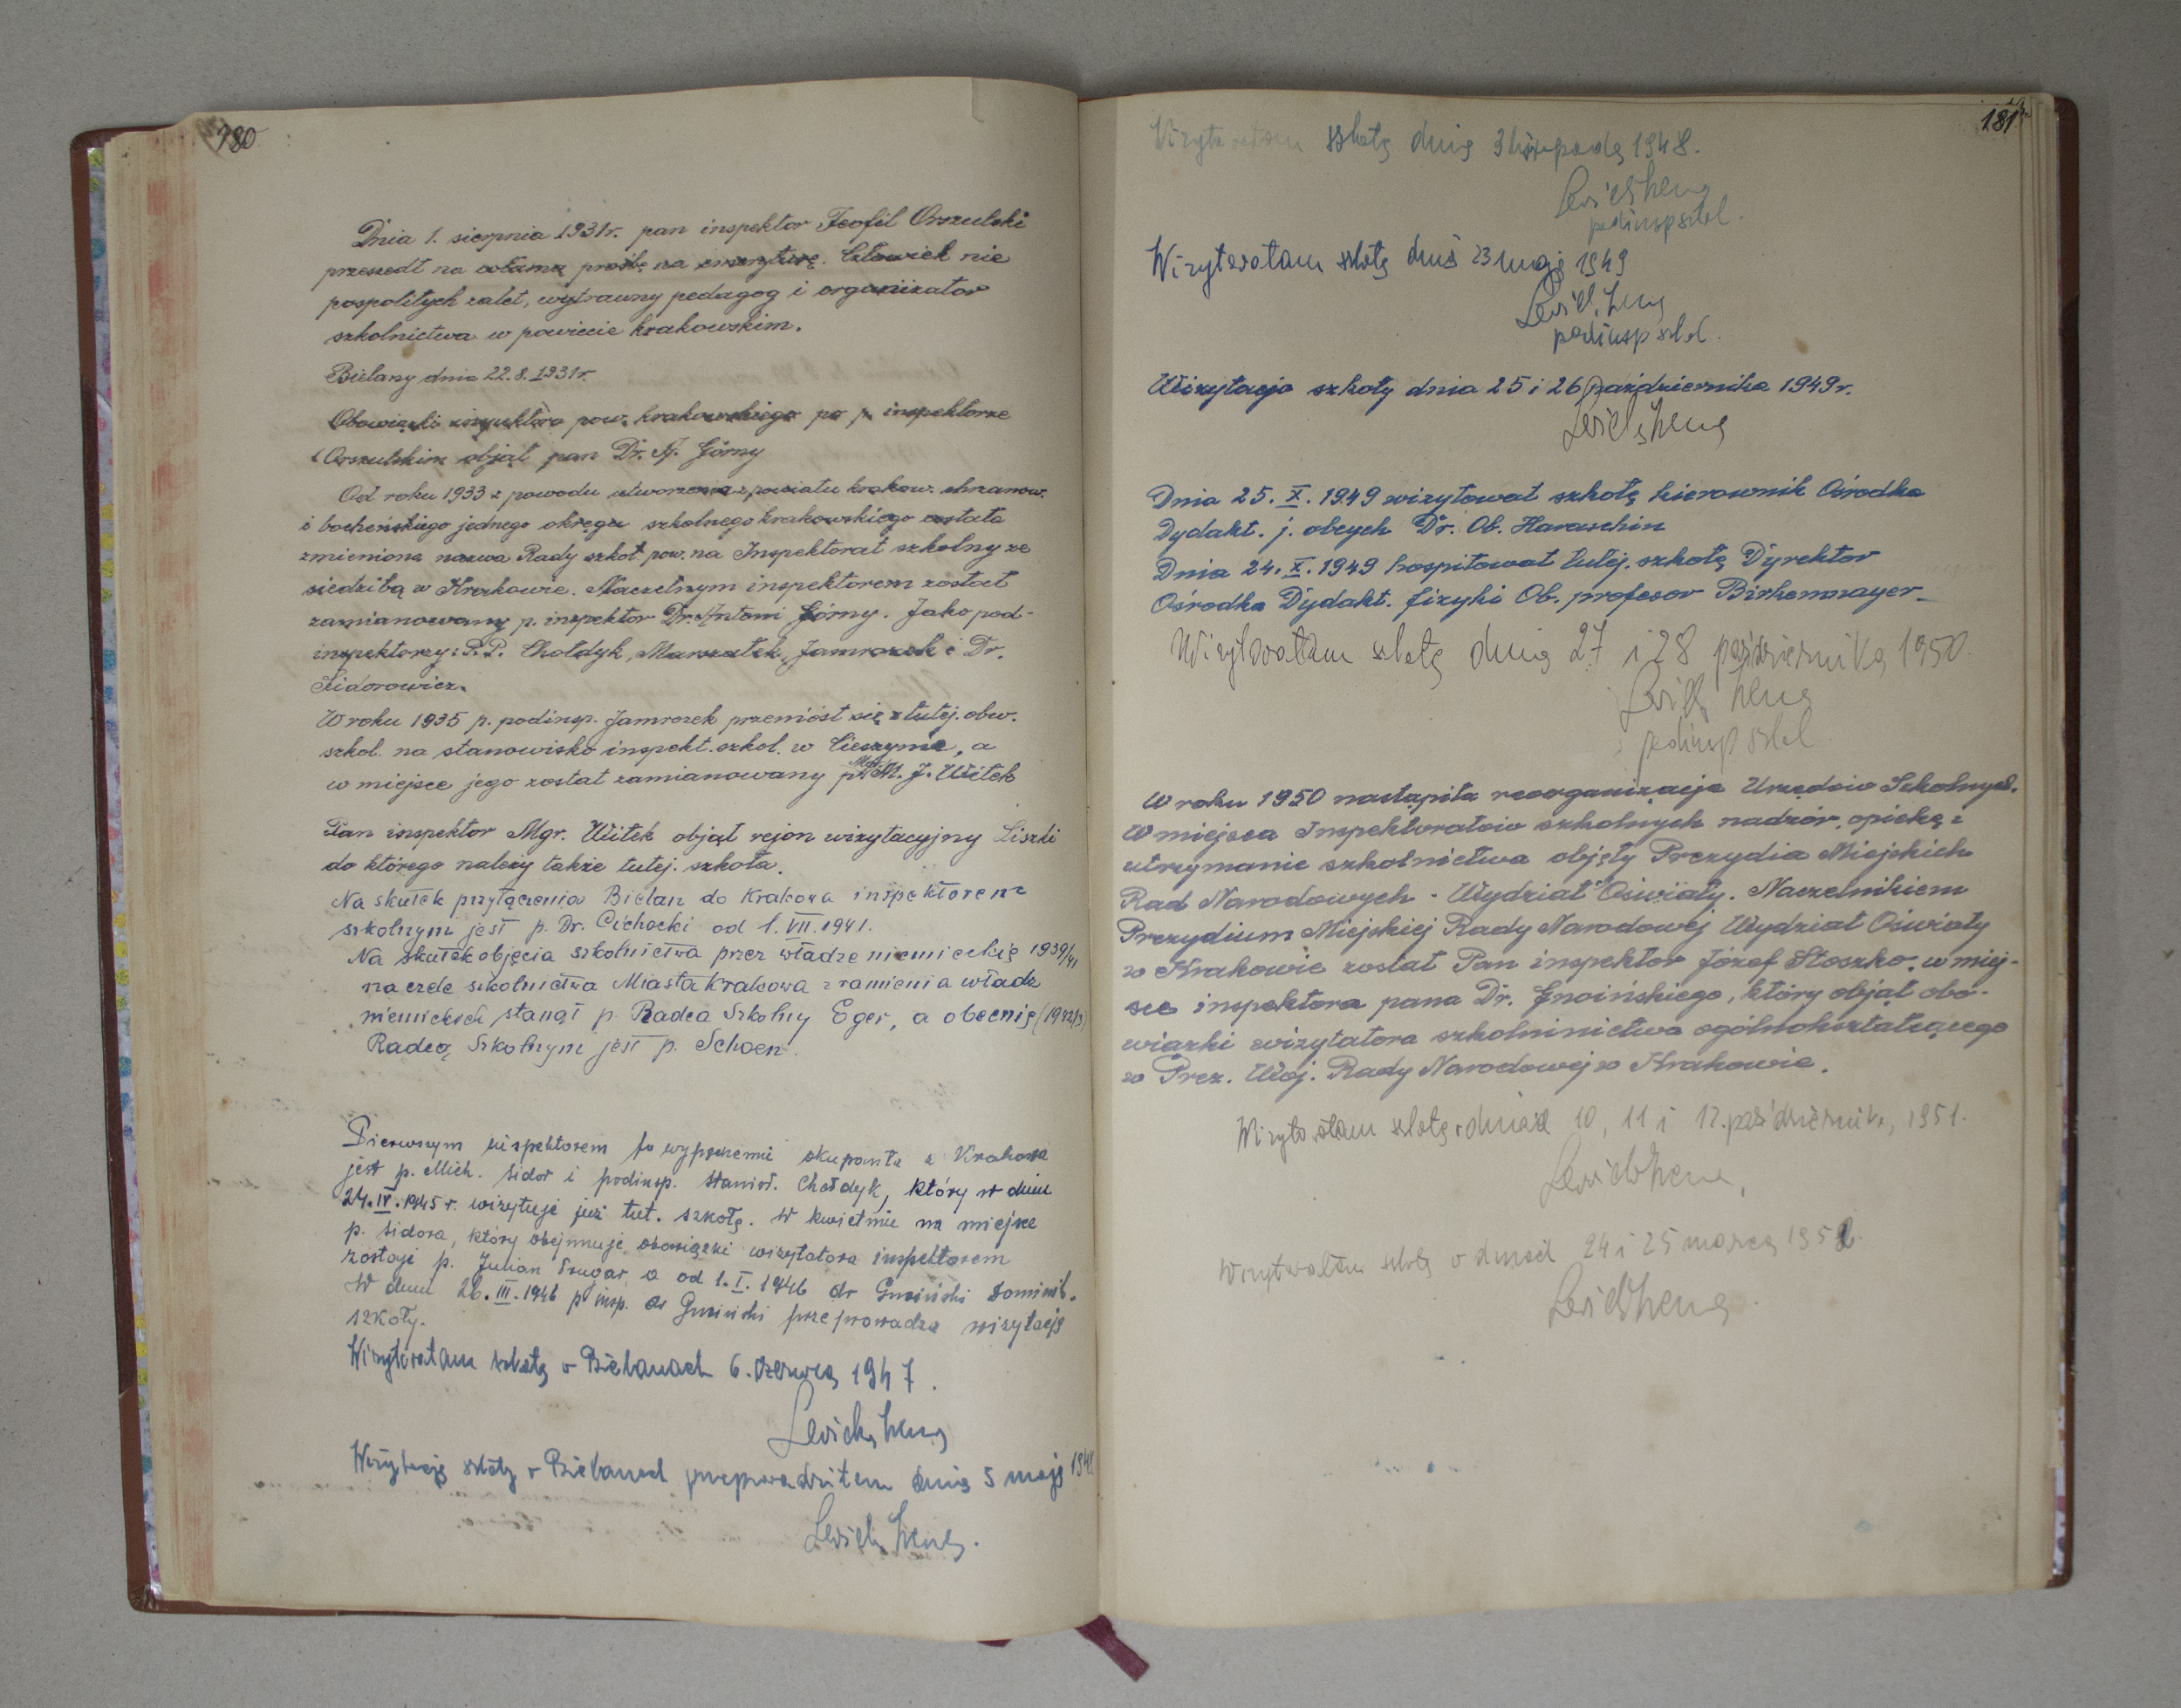 180
Dnia 1. sierpnia 1931r. pan inspektor Teofil Orszulski
przeszedł na własną prośbę na emeryturę. Człowiek nie
pospolitych zalet, wytrawny pedagog i organizator
szkolnictwa w powiecie krakowskim.
Bielany dnia 22.8.1931r.
Obowiązki inspektora pow. krakowskiego po p. inspektorze
Orszulskim objął pan Dr. A. Górny
Od roku 1933 z powodu utworzenia z powiatu krakow. chrzanow.
i bocheńskiego jednego okręgu szkolnego krakowskiego została
zmieniona nazwa Rady szkol. pow. na Inspektorat szkolny ze
siedzibą w Krakowie. Naczelnym inspektorem został
zamianowany p. inspektor Dr. Antoni Górny. Jako pod-
inspektorzy: P.P. Chołdyk, Marszałek, Jamrozek i Dr.
Sidorowicz.
W roku 1935 p. podinsp. Jamrozek przeniósł się z tutej. obw.
szkol. na stanowisko inspekt. szkol. w Cieszynie, a
w miejsce jego został zamianowany p. Mgr. M. J. Witek
Pan inspektor Mgr. Witek objął rejon wizytacyjny Liszki
do którego należy także tutej. szkoła.
Na skutek przyłączenia Bielan do Krakowa inspektorem
szkolnym jest p. Dr. Cichocki od 1.VII.1941.
Na skutek objęcia szkolnictwa przez władze niemieckie 1939/41
na czele szkolnictwa Miasta Krakowa z ramienia władz
niemieckich stanął p. Radca Szkolny Eger, a obecnie (1942/3)
Radcą Szkolnym jest p. Schoen.
Pierwszym inspektorem po wypędzeniu okupanta z Krakowa
jest p. Mich. Sidor i podinsp. Stanisł. Chołdyk, który w dniu
24.IV.1945 r. wizytuje już tut. szkołę. W kwietniu na miejsce
p. Sidora, który obejmuje obowiązki wizytatora inspektorem
zostaje p. Julian a od 1.I.1946 dr Gnoiński Dominik.
W dniu 26.III.1946 p insp. dr Gnoiński przeprowadza wizytację
szkoły.
Wizytowałam szkołę w Bielanach 6. czerwca 1947.
Wizytację szkoły w Bielanach przeprowadziłam dnia 5 maja 1948
181
Wizytowałam szkołę dnia 3 listopada 1948.
podinsp szkol.
Wizytowałam szkołę dnia 23 maja 1949
podinsp szkol.
Wizytacja szkoły dnia 25 i 26 października 1949r.
Dnia 25.X.1949 wizytował szkołę kierownik Ośrodka
Dydakt. j. obcych Dr. Ob. Haraschin
Dnia 24.X.1949 hospitował tutej. szkołę Dyrektor
Ośrodka Dydakt. fizyki Ob. profesor Birkenmayer
Wizytowałam szkołę dnia 27 i 28 października 1950.
podinsp szkol
W roku 1950 nastąpiła reorganizacja Urzędów Szkolnych.
W miejsca Inspektoratów szkolnych nadzór, opiekę i
utrzymanie szkolnictwa objęły Prezydia Miejskich
Rad Narodowych - Wydział Oświaty. Naczelnikiem
Prezydium Miejskiej Rady Narodowej Wydział Oświaty
w Krakowie został Pan inspektor Józef Stoszko, w miej-
sce inspektora pana Dr. Gnoińskiego, który objął obo-
wiązki wizytatora szkolninictwa ogólnokształcącego
w Prez. Woj. Rady Narodowej w Krakowie.
Wizytowałam szkołę w dniach 10, 11 i 12. października 1951.
Wizytowałam szkołę w dniach 24 i 25 marca 1952.